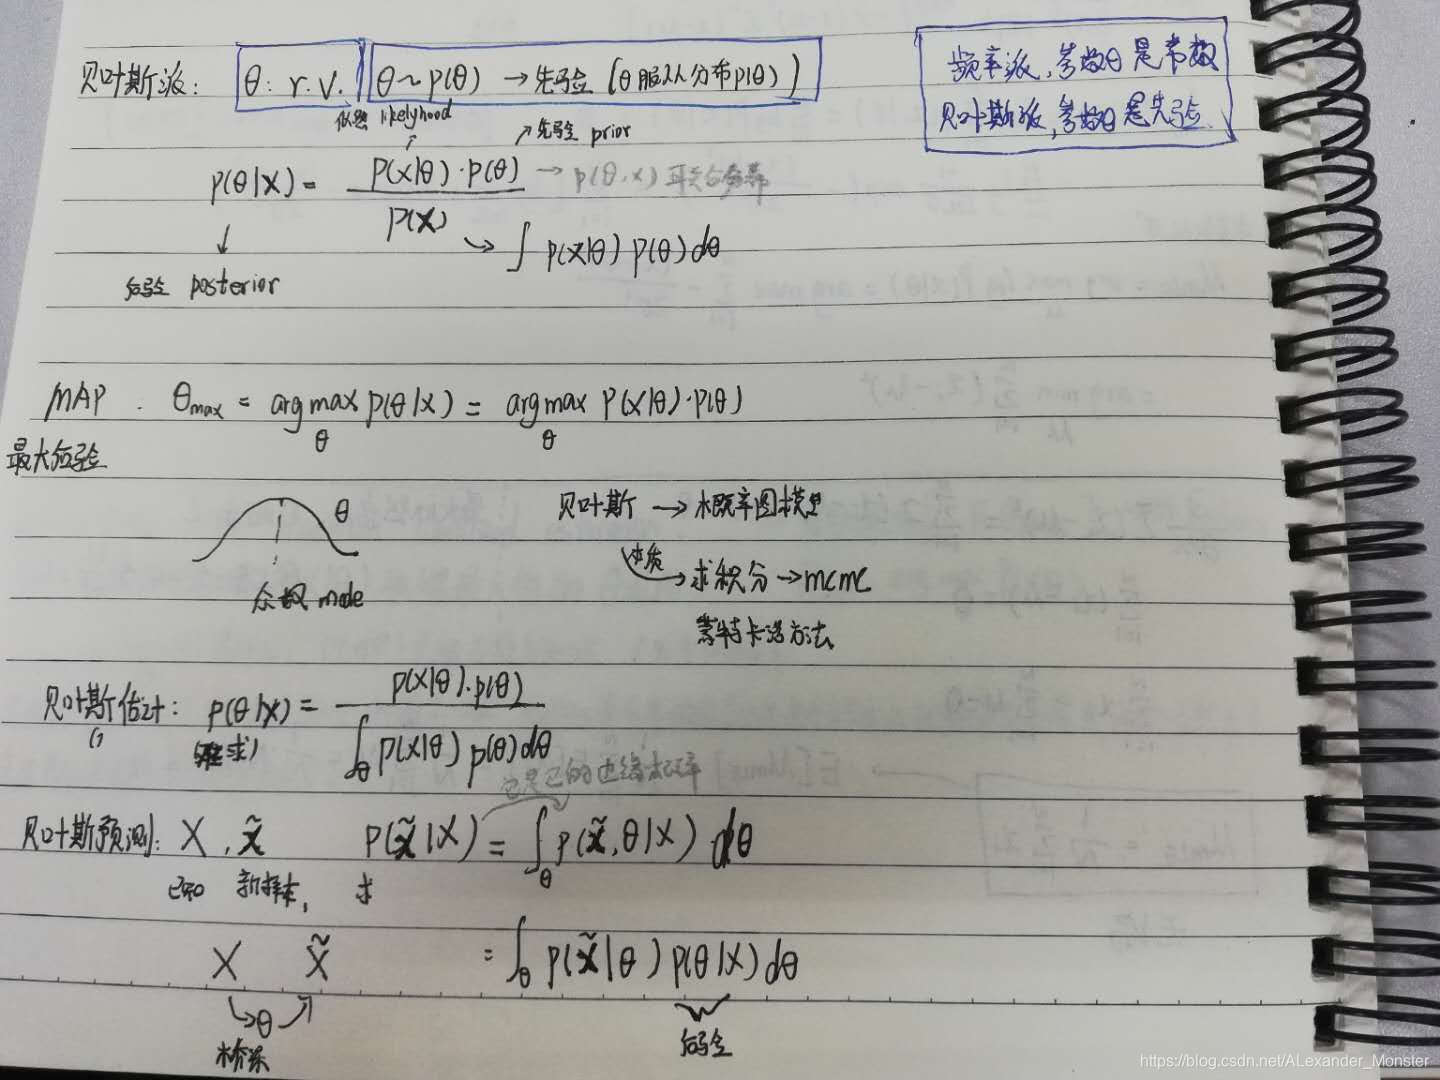 贝叶斯派: θ: r.v. θ~p(θ) → 先验 (θ服从分布p(θ))
频率派,参数θ是常数
贝叶斯派,参数θ是先验
似然 likelyhood
↗先验 prior
p(θ|X) = P(X|θ)·p(θ) / P(X)
→ p(θ,x)
↘ ∫ p(X|θ) p(θ) dθ
后验 posterior
MAP : θmax = argmax_θ p(θ|X) = argmax_θ P(X|θ)·p(θ)
最大后验
θ
众数 mode
贝叶斯 → 概率图模型
本质 → 求积分 → MCMC
蒙特卡洛方法
贝叶斯估计: p(θ|X) = p(X|θ)·p(θ) / ∫_θ p(X|θ) p(θ) dθ
(难求)
边缘概率
贝叶斯预测: X , x̃ P(x̃|X) = ∫_θ p(x̃,θ|X) dθ
已知 新样本, 求
X X̃ = ∫_θ p(x̃|θ) p(θ|X) dθ
↘→θ↗
桥梁
后验
https://blog.csdn.net/ALexander_Monster